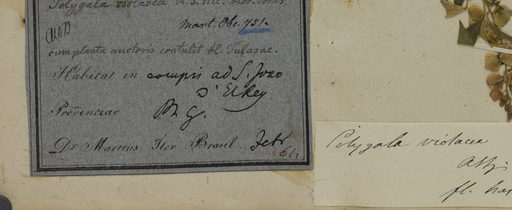 Polygala violacea
Mart. Obs. 751.
cum planta auctoris contulit cl. Tulasne.
Habitat in campis ad S. Joao
D'El Rey
Provinciae M. G.
Dr Martius Iter Brasil. Febr
Polygala violacea
Aubl.
fl. bras